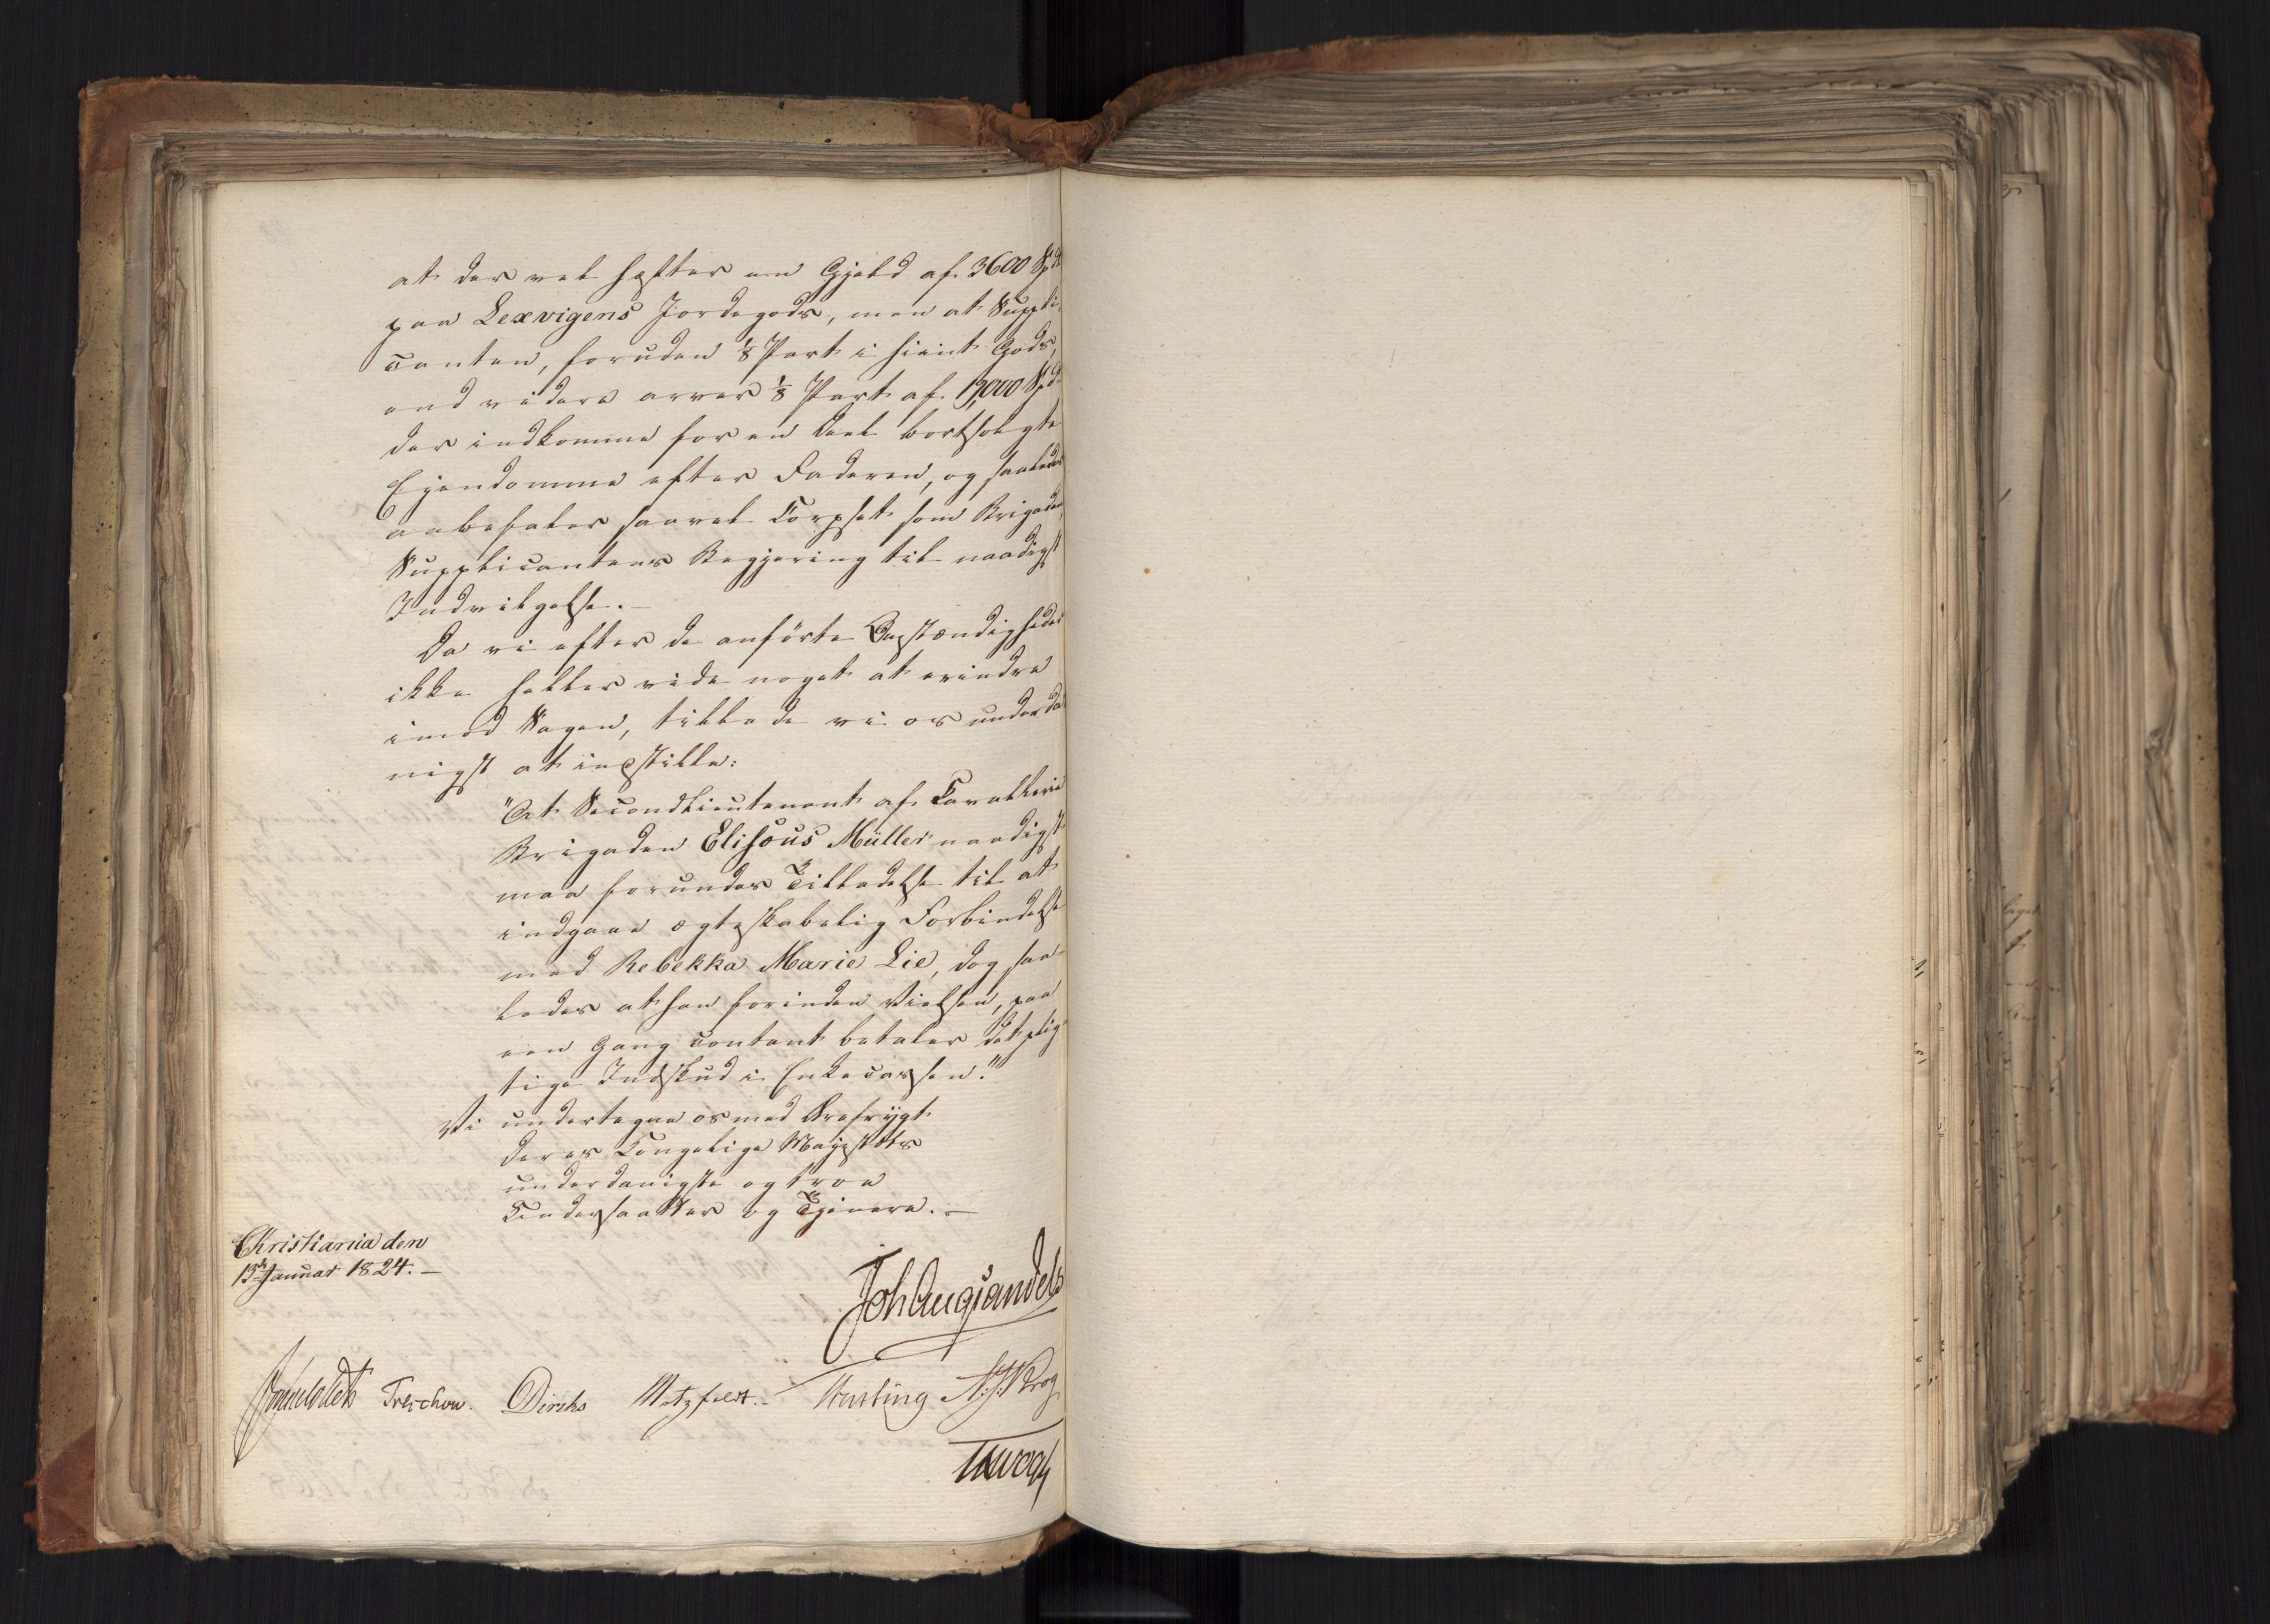 at der vel hefter een Gjeld af 3600 Spd
paa Lexvigens Jordegods, men at Suppli-
canten, foruden 1/8 Part i hiint Gods,
end videre arver 1/8 Part af 12,000 Spd
der indkomme for en Deel bortsolgte
Ejendomme efter Faderen, og saaledes
anbefaler saavel Corpset som Brigaden,
Supplicantens Begjering til naadigst
Indvilgelse.
Da vi efter de anförte Omstændigheder
ikke heller vide noget at erindre
imod Sagen, tillade vi os underda-
nigst at indstille:
"At Secondlieutenant af Cavallerie
Brigaden Elisæus Müller naadigst
maa forundes Tilladelse til at
indgaae ægteskabelig Forbindelse
med Rebekka Marie Lie, dog saa-
ledes at han forinden Vielsen, paa
een Gang contant betaler det plig-
tige Indskud i Enkecassen."
Vi undertegne os med Ærefrygt
Deres Kongelige Majestæts
underdanigste og troe
Undersaatter og Tjenere.
Christiania den
13de Januar 1824.
Joh Aug Sandels
Sommerhielm Treschow. Diriks Motzfeldt. Fasting A. J. Krog